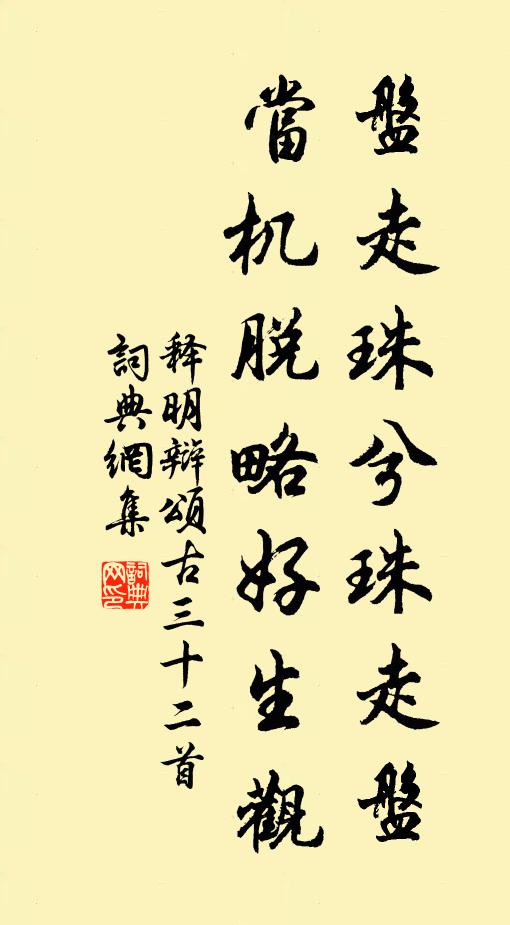 盤走珠兮珠走盤
當机脫略好生觀
释明辯頌古三十二首
詞典網集
詞典网印